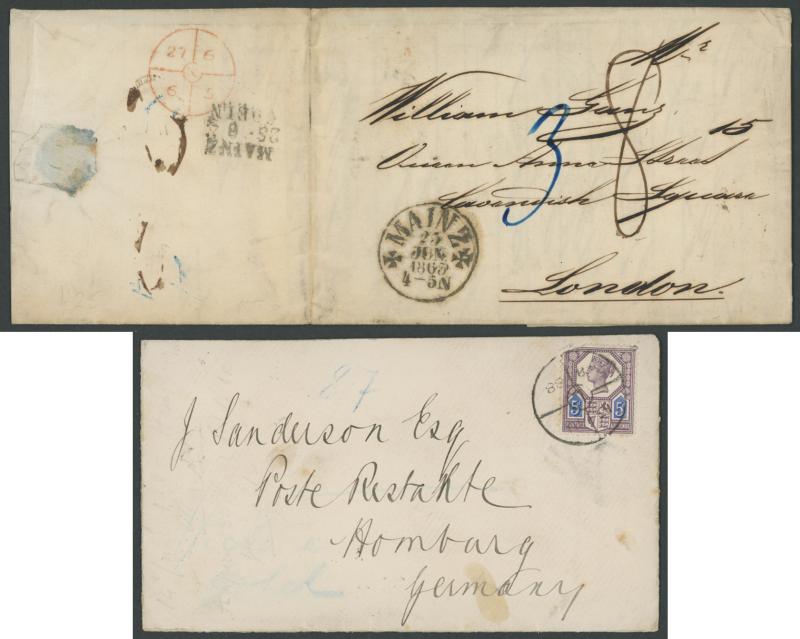 27 6
6 5
MAINZ
25. 6
Mr
William Gans
15
Queen Anne Street
3 8
Cavendish Square
London.
MAINZ
25
JUN
1865
4-5N
87
J Sanderson Esq
Poste Restante
Homburg
Germany
88
5 5